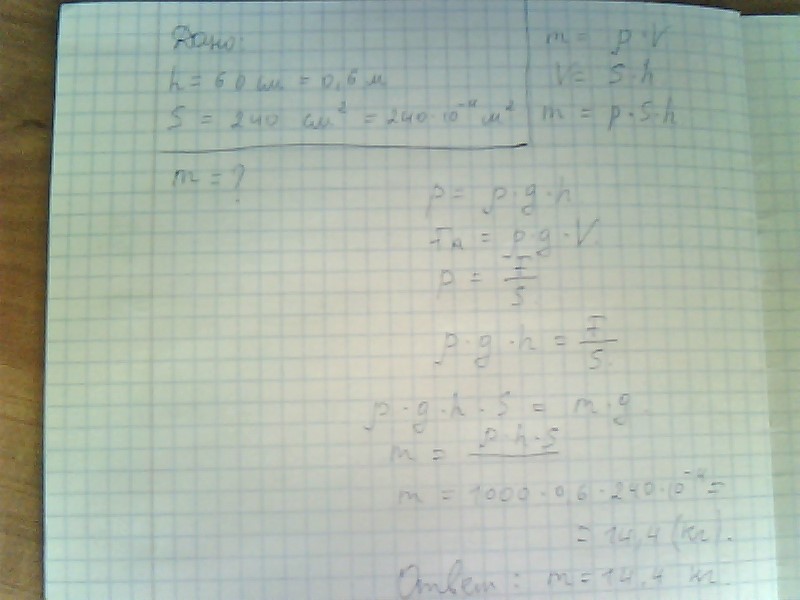 Дано:
h = 60 см = 0,6 м
S = 240 см² = 240·10⁻⁴ м²
m = ?
m = ρ·V
V = S·h
m = ρ·S·h
p = ρ·g·h
Fа = ρ·g·V
p = F/S
ρ·g·h = F/S
ρ·g·h·S = m·g
m = ρ·h·S
m = 1000·0,6·240·10⁻⁴ =
= 14,4 (кг).
Ответ: m = 14,4 кг